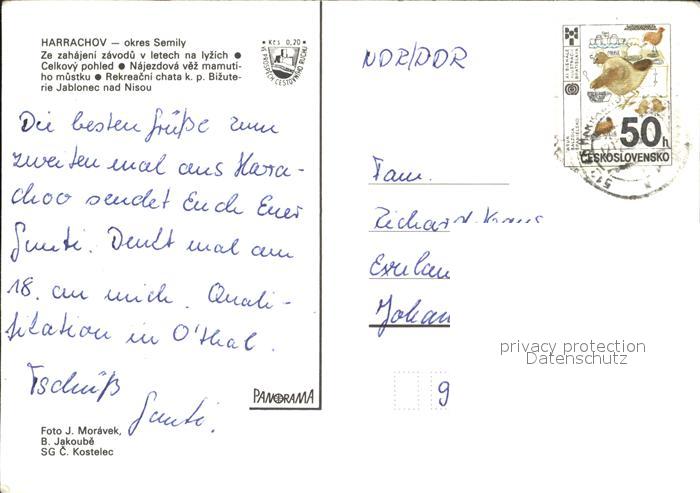 HARRACHOV — okres Semily
Ze zahájení závodů v letech na lyžích ●
Celkový pohled ● Nájezdová věž mamutí-
ho můstku ● Rekreační chata k. p. Bižute-
rie Jablonec nad Nisou
Kčs 0,20
VE PROSPĚCH CESTOVNÍHO RUCHU
Die besten Grüße zum
zweiten mal aus Harra-
chov sendet Euch Euer
Denkt mal am
18. an mich. Quali-
fikation in O'thal.
Tschüß
PANORAMA
Foto J. Morávek,
B. Jakoubě
SG Č. Kostelec
NDR/DDR
50h
ČESKOSLOVENSKO
Fam.
Richard
Johan
9
privacy protection
Datenschutz